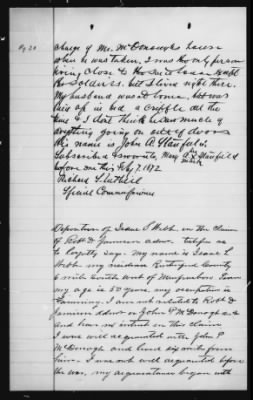 Pg 21
charge of Mr. McDonough's house
when it was taken, I was the only person
living close to the said house except
the Soldiers. but I lived right there.
My husband was at home, but was
laid up in bed a cripple all the
time & I dont think he saw much of
anything going on out of doors
His name is John A. Stanfield.
Subscribed & sworn to, Mary A. her x mark Stanfield
before me this Feby 7, 1872
Special Commissioner
Deposition of Isaac S. Webb in the claim
of Robt D. Jamison admr. testifies as
to loyalty says: My name is Isaac S.
Webb my residence Rutherford County
miles South west of Murfreesboro Tenn
my age is 50 years, my occupation is
Farming. I am not related to Robt D
Jamison Admr or John P McDonough dec'd
and have no interest in this claim
I was well acquainted with John P.
McDonough and lived six miles from
him. I was not well acquainted before
the war, my acquaintance began with